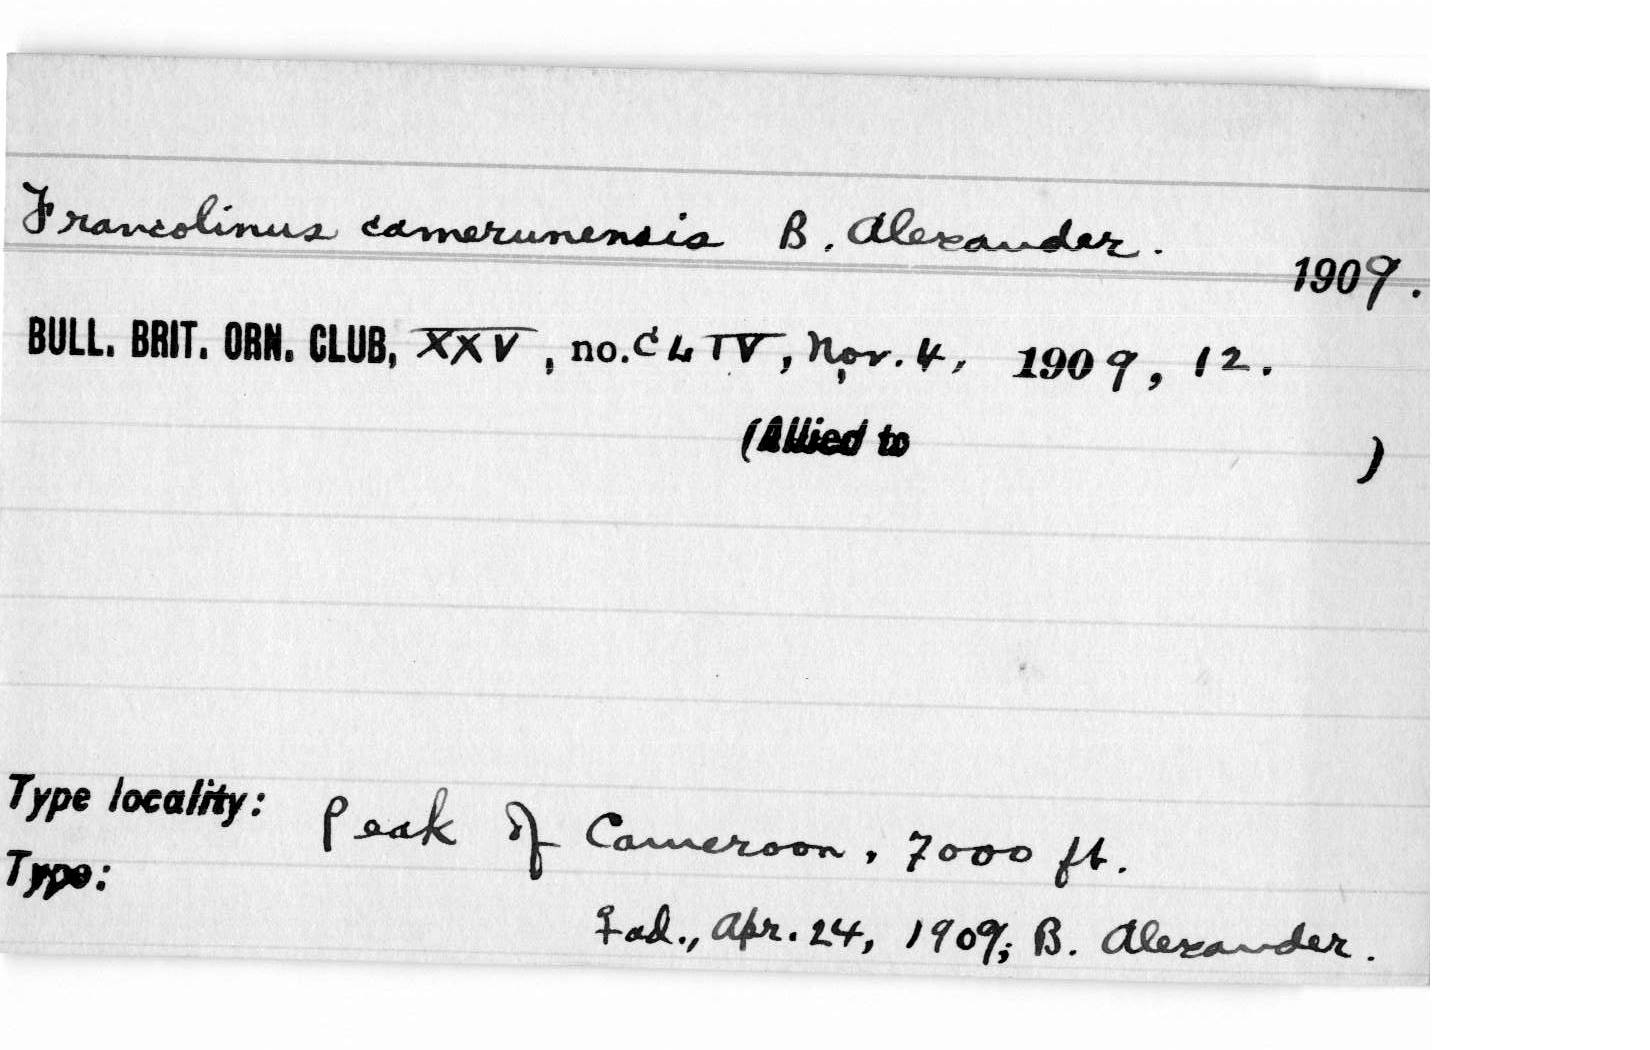 Francolinus camerunensis B. Alexander. 1909.
BULL. BRIT. ORN. CLUB, XXV, no. CLIV, Nov. 4, 1909, 12.
(Allied to )
Type locality: Peak of Cameroon, 7000 ft.
Type:
♀ ad., Apr. 24, 1909; B. Alexander.